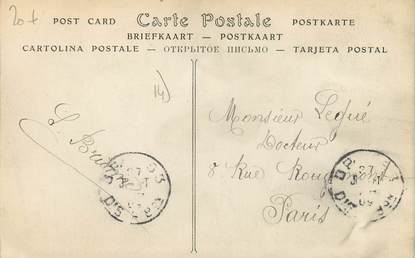 20 t
POST CARD Carte Postale POSTKARTE
BRIEFKAART — POSTKAART
CARTOLINA POSTALE — ОТКРЫТОЕ ПИСЬМО — TARJETA POSTAL
14)
Monsieur Legué
Docteur
8 Rue
Paris